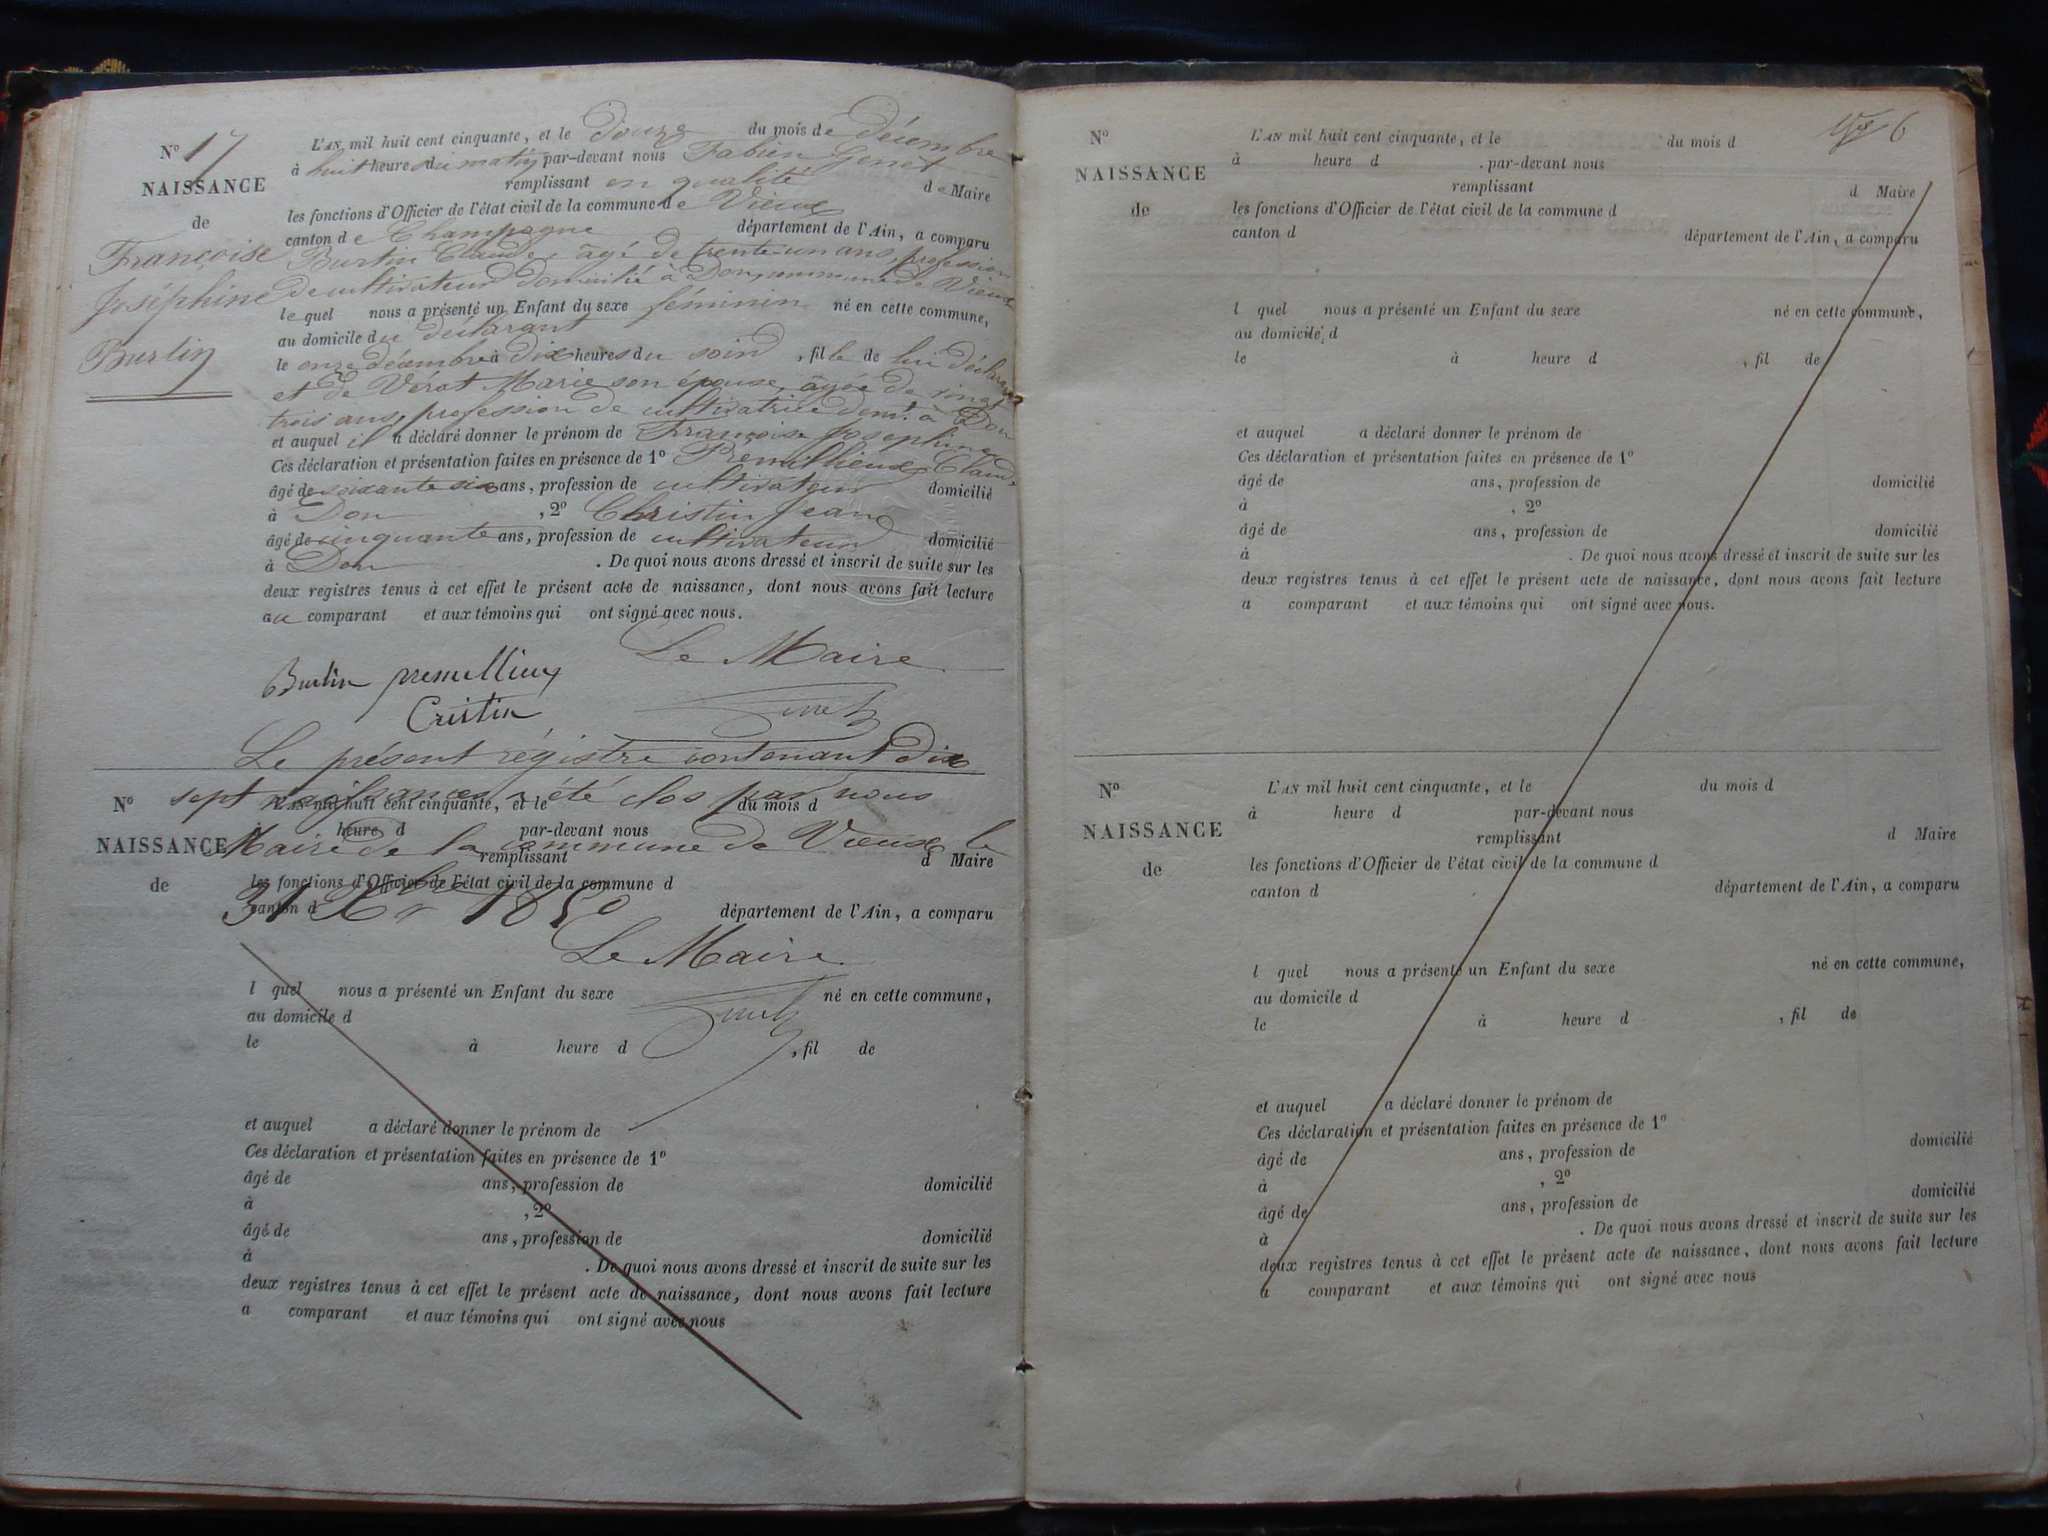 N° 17
NAISSANCE
de
Françoise
Joséphine
Burtin
L'AN mil huit cent cinquante, et le douze du mois de décembre
à huit heure du matin par-devant nous Fabien Genet
remplissant en qualité de Maire
les fonctions d'Officier de l'état civil de la commune de Vieux
canton de Champagne département de l'Ain, a comparu
Burtin Claude, âgé de trente-un ans, profession
de cultivateur domicilié à Don, commune de Vieux
lequel nous a présenté un Enfant du sexe féminin né en cette commune,
au domicile du déclarant
le onze décembre à dix heures du soir, fille de lui déclarant
et de Vérat Marie son épouse, âgée de vingt
trois ans, profession de cultivatrice domt. à Don
et auquel il a déclaré donner le prénom de Françoise Joséphine
Ces déclaration et présentation faites en présence de 1° Premillieux Claude
âgé de soixante six ans, profession de cultivateur domicilié
à Don, 2° Christin Jean
âgé de cinquante ans, profession de cultivateur domicilié
à Don. De quoi nous avons dressé et inscrit de suite sur les
deux registres tenus à cet effet le présent acte de naissance, dont nous avons fait lecture
au comparant et aux témoins qui ont signé avec nous.
Le Maire
Burtin premillieux
Cristin Genet
Le présent régistre contenant dix
sept naissances a été clos par nous
Maire de la commune de Vieux le
31 Xbre 1850
Le Maire
Genet
N°
NAISSANCE
de
L'AN mil huit cent cinquante, et le du mois d
à heure d par-devant nous
remplissant d Maire
les fonctions d'Officier de l'état civil de la commune d
canton d département de l'Ain, a comparu
l quel nous a présenté un Enfant du sexe né en cette commune,
au domicile d
le à heure d , fil de
et auquel a déclaré donner le prénom de
Ces déclaration et présentation faites en présence de 1°
âgé de ans, profession de domicilié
à , 2°
âgé de ans, profession de domicilié
à . De quoi nous avons dressé et inscrit de suite sur les
deux registres tenus à cet effet le présent acte de naissance, dont nous avons fait lecture
a comparant et aux témoins qui ont signé avec nous
6
N°
NAISSANCE
de
L'AN mil huit cent cinquante, et le du mois d
à heure d . par-devant nous
remplissant d Maire
les fonctions d'Officier de l'état civil de la commune d
canton d département de l'Ain, a comparu
l quel nous a présenté un Enfant du sexe né en cette commune,
au domicile d
le à heure d , fil de
et auquel a déclaré donner le prénom de
Ces déclaration et présentation faites en présence de 1°
âgé de ans, profession de domicilié
à , 2°
âgé de ans, profession de domicilié
à . De quoi nous avons dressé et inscrit de suite sur les
deux registres tenus à cet effet le présent acte de naissance, dont nous avons fait lecture
a comparant et aux témoins qui ont signé avec nous.
N°
NAISSANCE
de
L'AN mil huit cent cinquante, et le du mois d
à heure d par-devant nous
remplissant d Maire
les fonctions d'Officier de l'état civil de la commune d
canton d département de l'Ain, a comparu
l quel nous a présenté un Enfant du sexe né en cette commune,
au domicile d
le à heure d , fil de
et auquel a déclaré donner le prénom de
Ces déclaration et présentation faites en présence de 1°
âgé de ans, profession de domicilié
à , 2°
âgé de ans, profession de domicilié
à . De quoi nous avons dressé et inscrit de suite sur les
deux registres tenus à cet effet le présent acte de naissance, dont nous avons fait lecture
a comparant et aux témoins qui ont signé avec nous